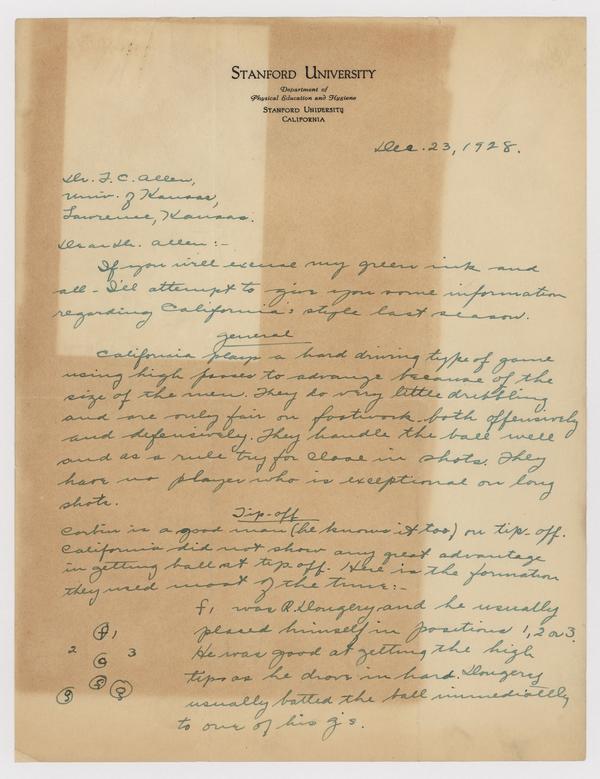 STANFORD UNIVERSITY
Department of
Physical Education and Hygiene
STANFORD UNIVERSITY
CALIFORNIA
Dec. 23, 1928.
Dr. F. C. Allen,
Univ. of Kansas,
Lawrence, Kansas.
Dear Dr. Allen:-
If you will excuse my green ink and
all - I'll attempt to give you some information
regarding California's style last season.
General
California plays a hard driving type of game
using high passes to advance because of the
size of the men. They do very little dribbling
and are only fair on footwork both offensively
and defensively. They handle the ball well
and as a rule try for close in shots. They
have no player who is exceptional on long
shots.
Tip-off
Corbin is a good man (he knows it too) on tip-off.
California did not show any great advantage
in getting ball at tip off. Here is the formation
they used most of the time:-
f1 was R. Dougery and he usually
placed himself in positions 1, 2 or 3.
He was good at getting the high
tips as he drove in hard. Dougery
usually batted the ball immediatlly
to one of his g's.
f 1
2 3
c
g g